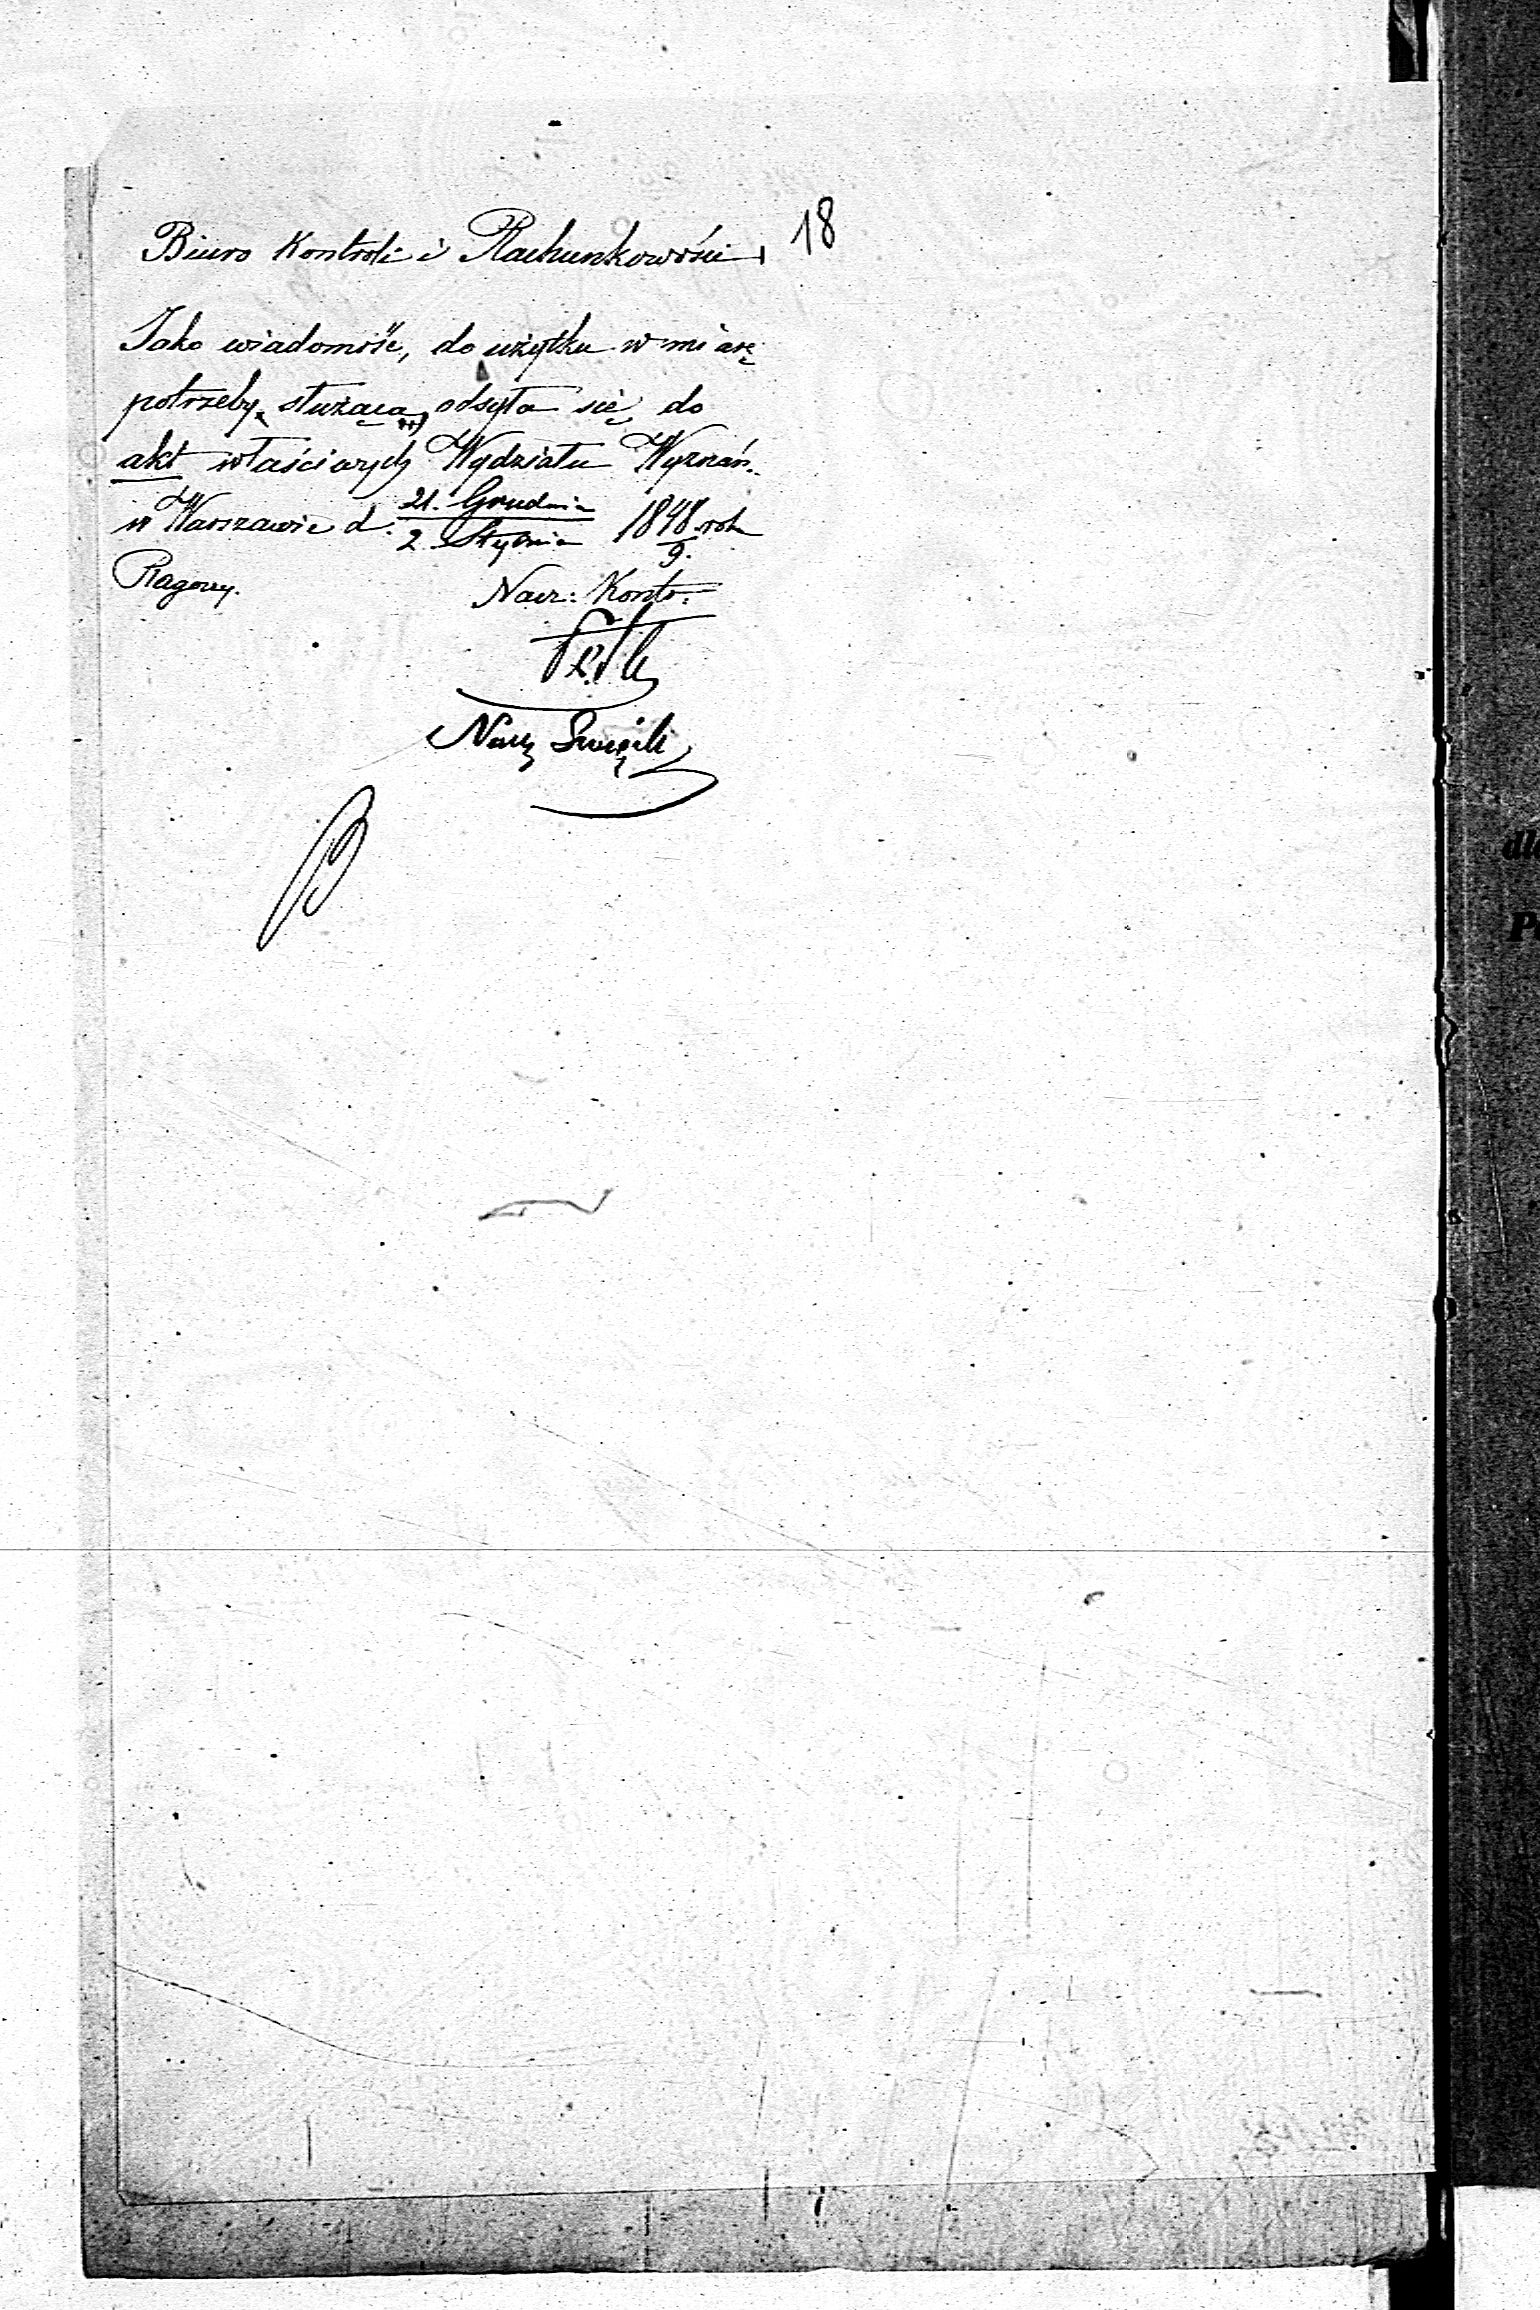 18
Biuro Kontroli i Rachunkowości
Jako wiadomość, do użytku w miarę
potrzeby służąca, odsyła się do
akt właściwych Wydziału Wyznań.
w Warszawie d. 21. Grudnia / 2. Stycznia 1848/9. roku
Nacz: Kontr:
Nacz